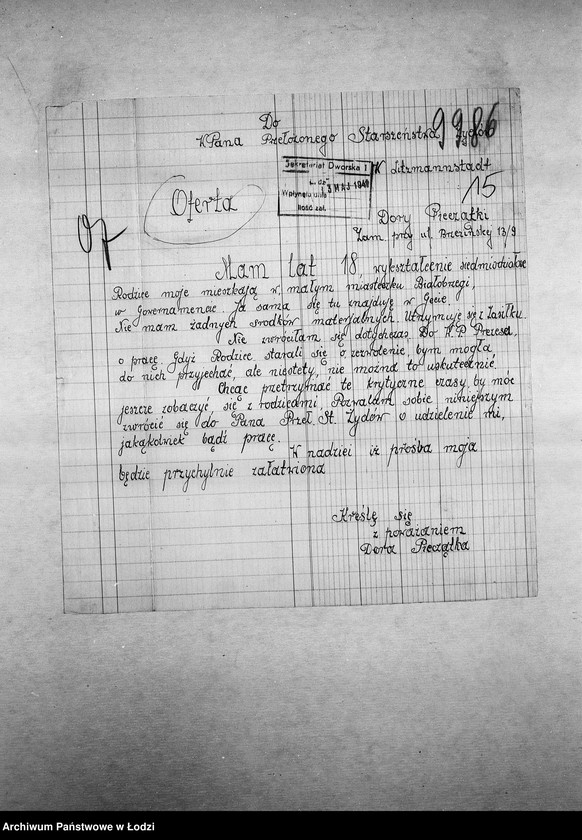 9986
Do
W.Pana Przełożonego Starszeństwa Żydów
Sekretariat Dworska 1
W Litzmannstadt
3 MAJ 1940
Wpłynęło dnia
Ilość zał.
15
Oferta
Dory Pieczątki
Zam. przy ul. Brzezinsky 13/9
Mam lat 18, wykształcenie siedmioduałowe
Rodzice moje mieszkają w małym miasteczku Białobrzegi,
w Governamencie. Ja sama się tu znajduję w Gecie.
Nie mam żadnych srodków materjalnych. Utrzymuję się z Zasiłku.
Nie zwróciłam się dotychczas Do W.P. Prezesa,
o pracę. Gdyż Rodzice starali się o zezwolenie, bym mogła
do nich przyjechać, ale niestety, nie można to uskutecznić.
Chcąc przetrzymać te krytyczne czasy by móc
jeszcze zobaczyć się z rodzicami Pozwalam sobie niniejszym
zwrócić się do Pana Przeł. St. Żydów o udzielenie mi,
jakąkolwiek bądź pracę.
W nadziei iż prośba moja
będzie przychylnie załatwiona
Kreślę się
z poważaniem
Dora Pieczątka
Archiwum Państwowe w Łodzi